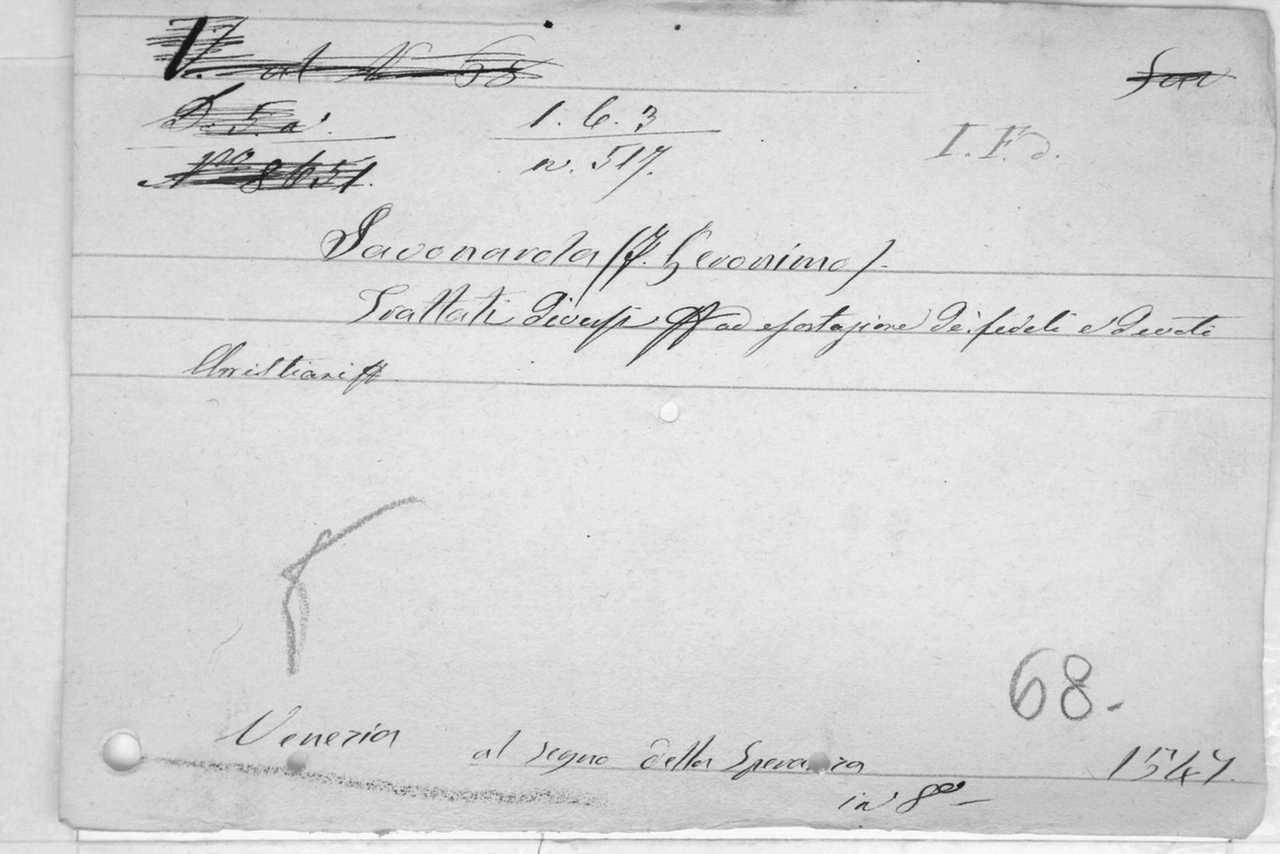 V. al N 68
D. 5. a.
1. 6. 3
I. F. d.
No. 8651.
n. 517.
Savonarola (F. Geronimo).
Trattati diversi ad esortazione dei fedeli e devoti
Christiani
68.
Venezia al segno della Speranza 1547.
in 8º